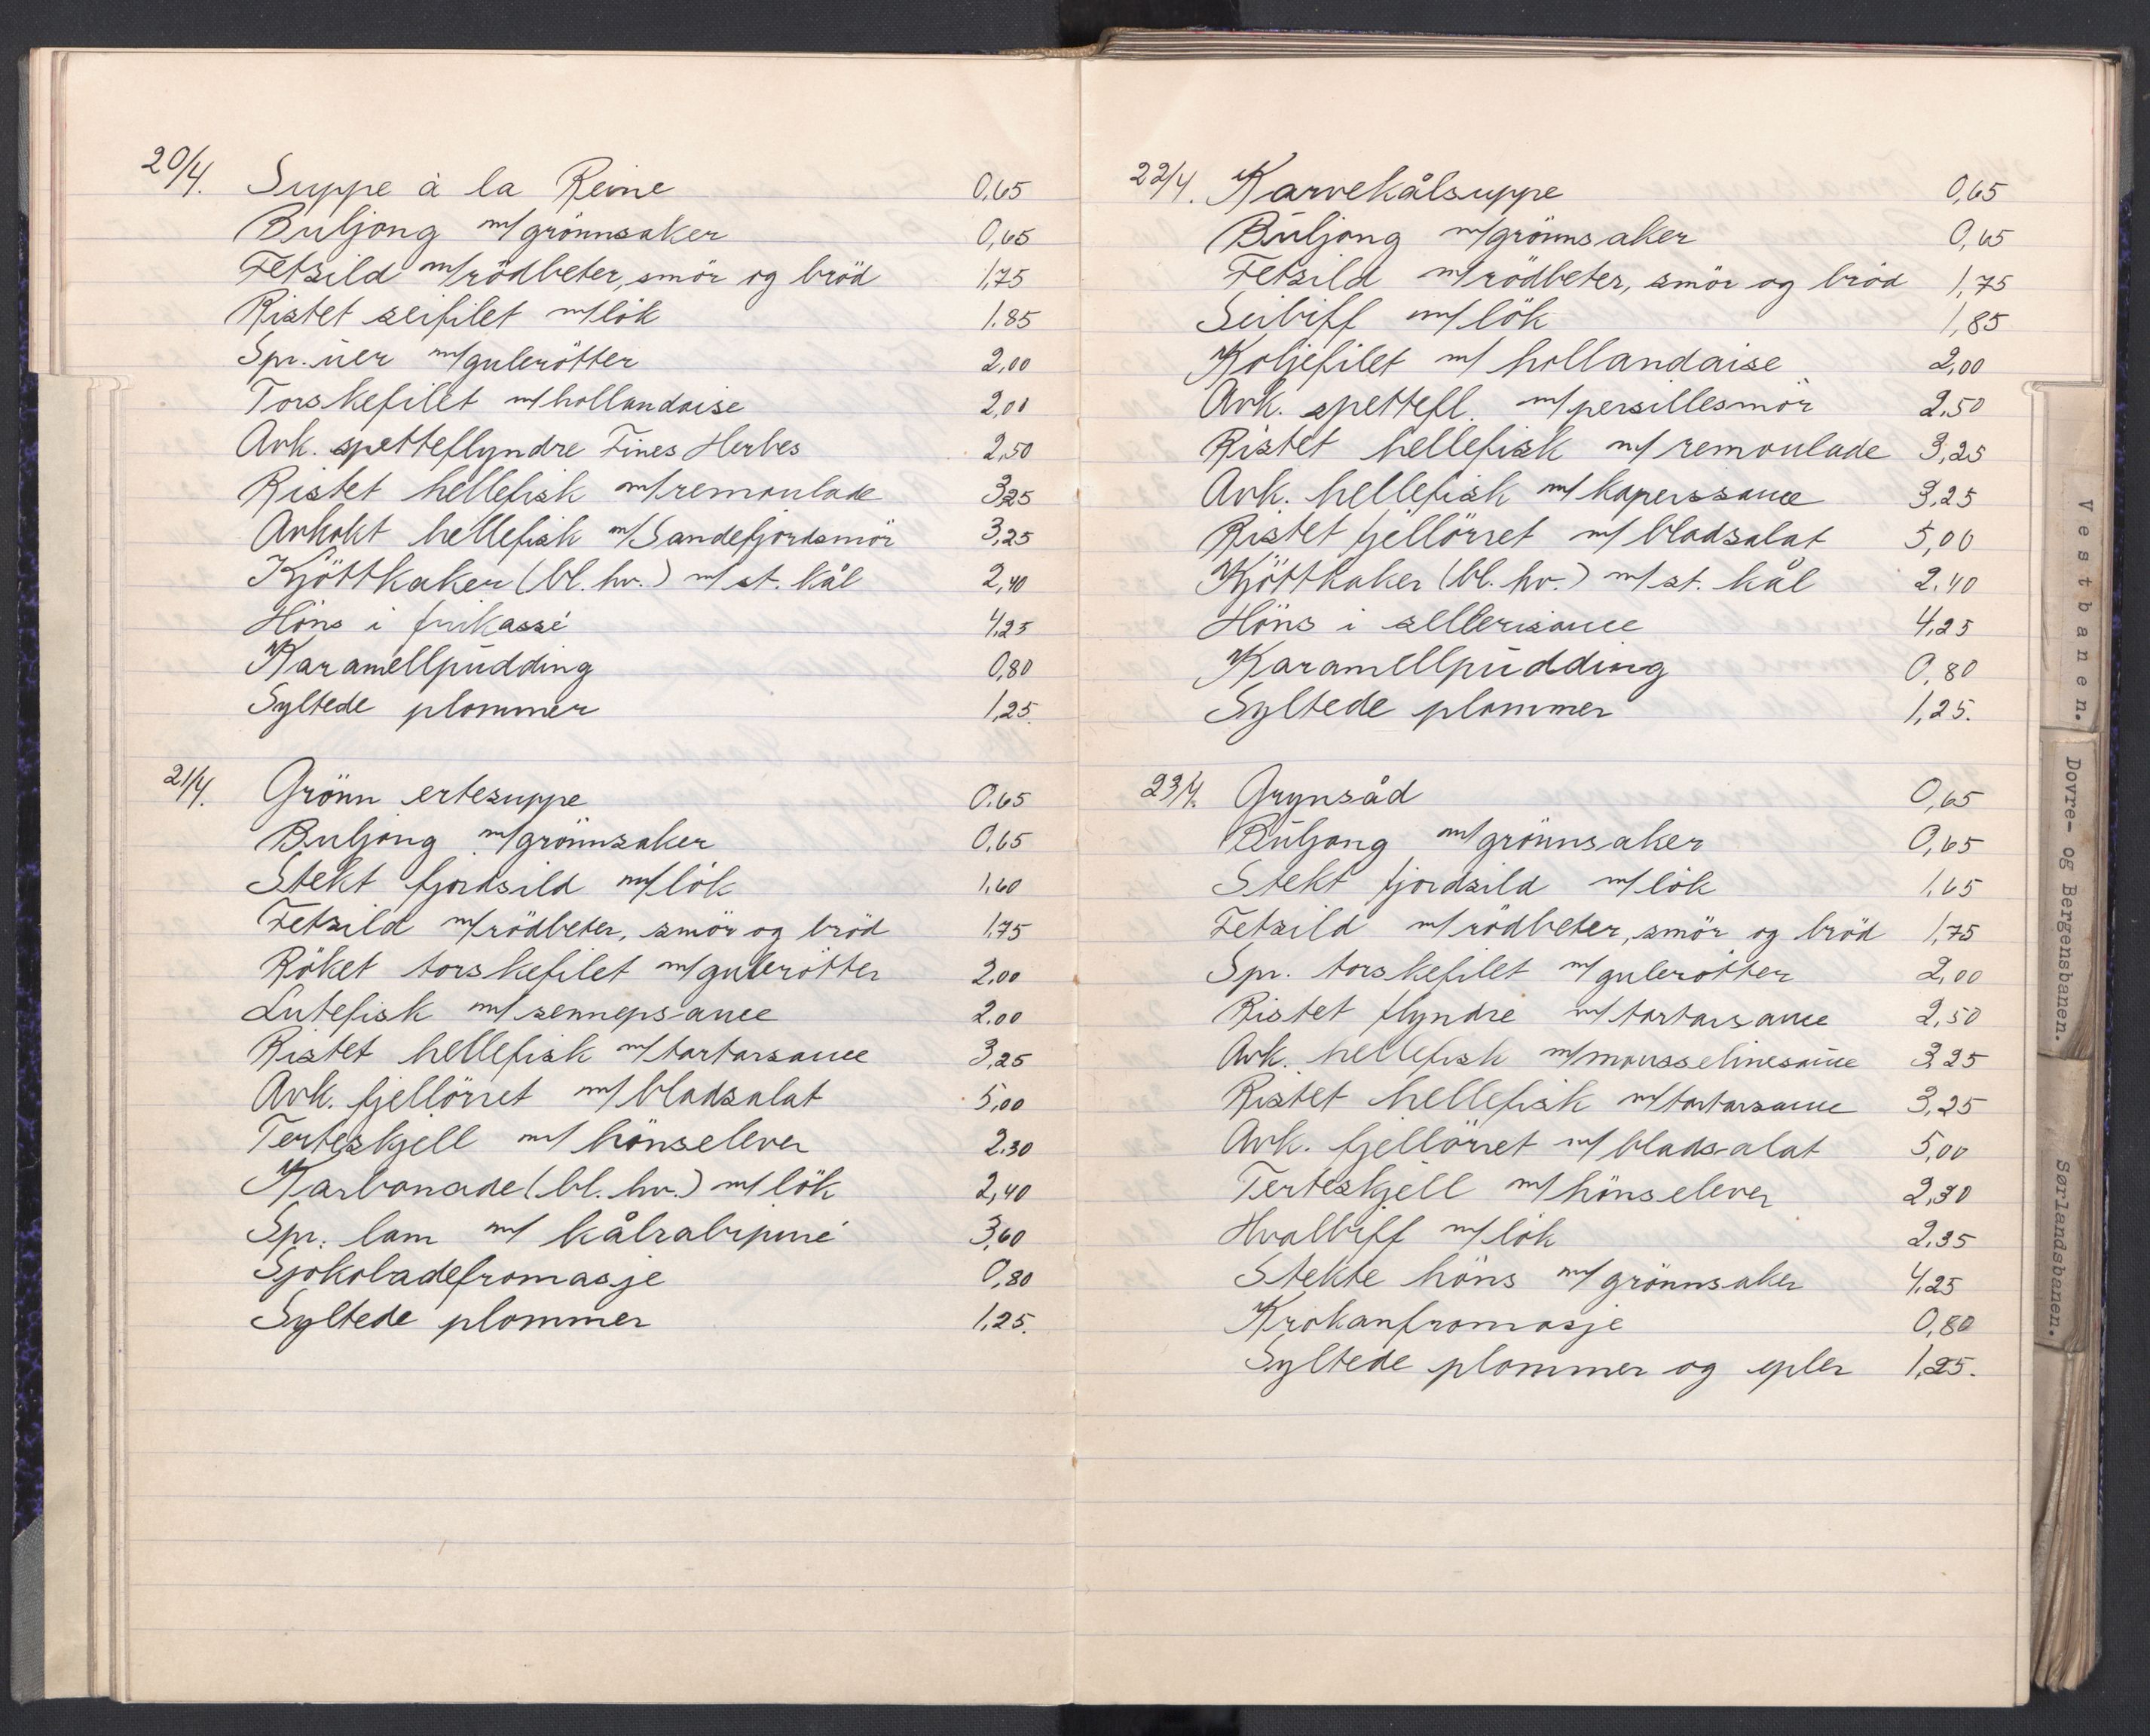 20/4. Suppe à la Reine 0,65
Buljong m/grönnsaker 0,65
Fetsild m/rödbeter, smör og bröd 1,75
Ristet seifilet m/lök 1.85
Spr. uer m/gulerötter 2,00
Torskefilet m/hollandaise 2,00
Avk. spetteflyndre Fines Herbes 2,50
Ristet hellefisk m/remoulade 3,25
Avkokt hellefisk m/Sandefjordsmör 3,25
Kjöttkaker (bl. hv.) m/st. kål 2,40
Höns i frikassé 4,25
Karamellpudding 0,80
Syltede plommer 1,25.
21/4. Grönn ertesuppe 0.65
Buljong m/grönnsaker 0,65
Stekt fjordsild m/lök 1,60
Fetsild m/rödbeter, smör og bröd 1,75
Röket torskefilet m/gulerötter 2.00
Lutefisk m/sennepsauce 2.00
Ristet hellefisk m/tartarsauce 3,25
Avk. fjellörret m/bladsalat 5,00
Terteskjell m/hönselever 2.30
Karbonade (bl. hv.) m/lök 2,40
Spr. lam m/ kålrabipuré 3,60
Sjokoladefromasje 0,80
Syltede plommer 1,25.
22/4. Karvekålsuppe 0,65
Buljong m/grönnsaker 0,65
Fetsild m/rödbeter, smör og bröd 1,75
Seibiff m/lök 1,85
Koljefilet m/ hollandaise 2,00
Avk. spettefl. m/persillesmör 2,50
Ristet hellefisk m/remoulade 3,25
Avk. hellefisk m/kaperssauce 3,25
Ristet fjellörret m/bladsalat 5,00
Kjöttkaker (bl. hv.) m/st. kål 2.40
Höns i sellerisauce 4,25
Karamellpudding 0,80
Syltede plommer 1,25.
23/4. Grynsåd 0,65
Buljong m/grönnsaker 0,65
Stekt fjordsild m/lök 1,65
Fetsild m/rödbeter, smör og bröd 1,75
Spr. torskefilet m/gulerötter 2,00
Ristet flyndre m/tartarsauce 2,50
Avk. hellefisk m/mousselinesauce 3,25
Ristet hellefisk m/tartarsauce 3,25
Avk. fjellörret m/bladsalat 5,00
Terteskjell m/hönselever 2,30
Hvalbiff m/lök 2.35
Stekte höns m/grönnsaker 4,25
Krokanfromasje 0,80
Syltede plommer og epler 1,25.
Vestbanen.
Dovre- og Bergensbanen.
Sørlandsbanen.